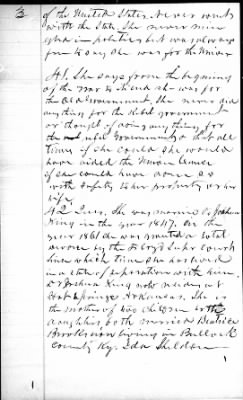 3
of the United States. Never went
with the State. She never min-
gled in politics but was always
free to say she was for the Union
41. She says from the beginning
of the war to its end she was for
the Old Government, she never did
anything for the Rebel Government
or thought of doing anything for
the Rebel Government & that all
times if she could she would
have aided the Union Armies
if she could have done so
with safety to her property or her
life.
42 Ques. She was married to Joshua
King in the year 1847. In the
year 1861 she was granted a total
divorce by the Supr Court
since which time she has lived
in a state of separation with him.
Joshua King now resides at
Hot Springs Arkansas. She is
the mother of two children
daughters both married Beatrice
Brooks now living in Bullock
County &. Ida Sheldon
1
1